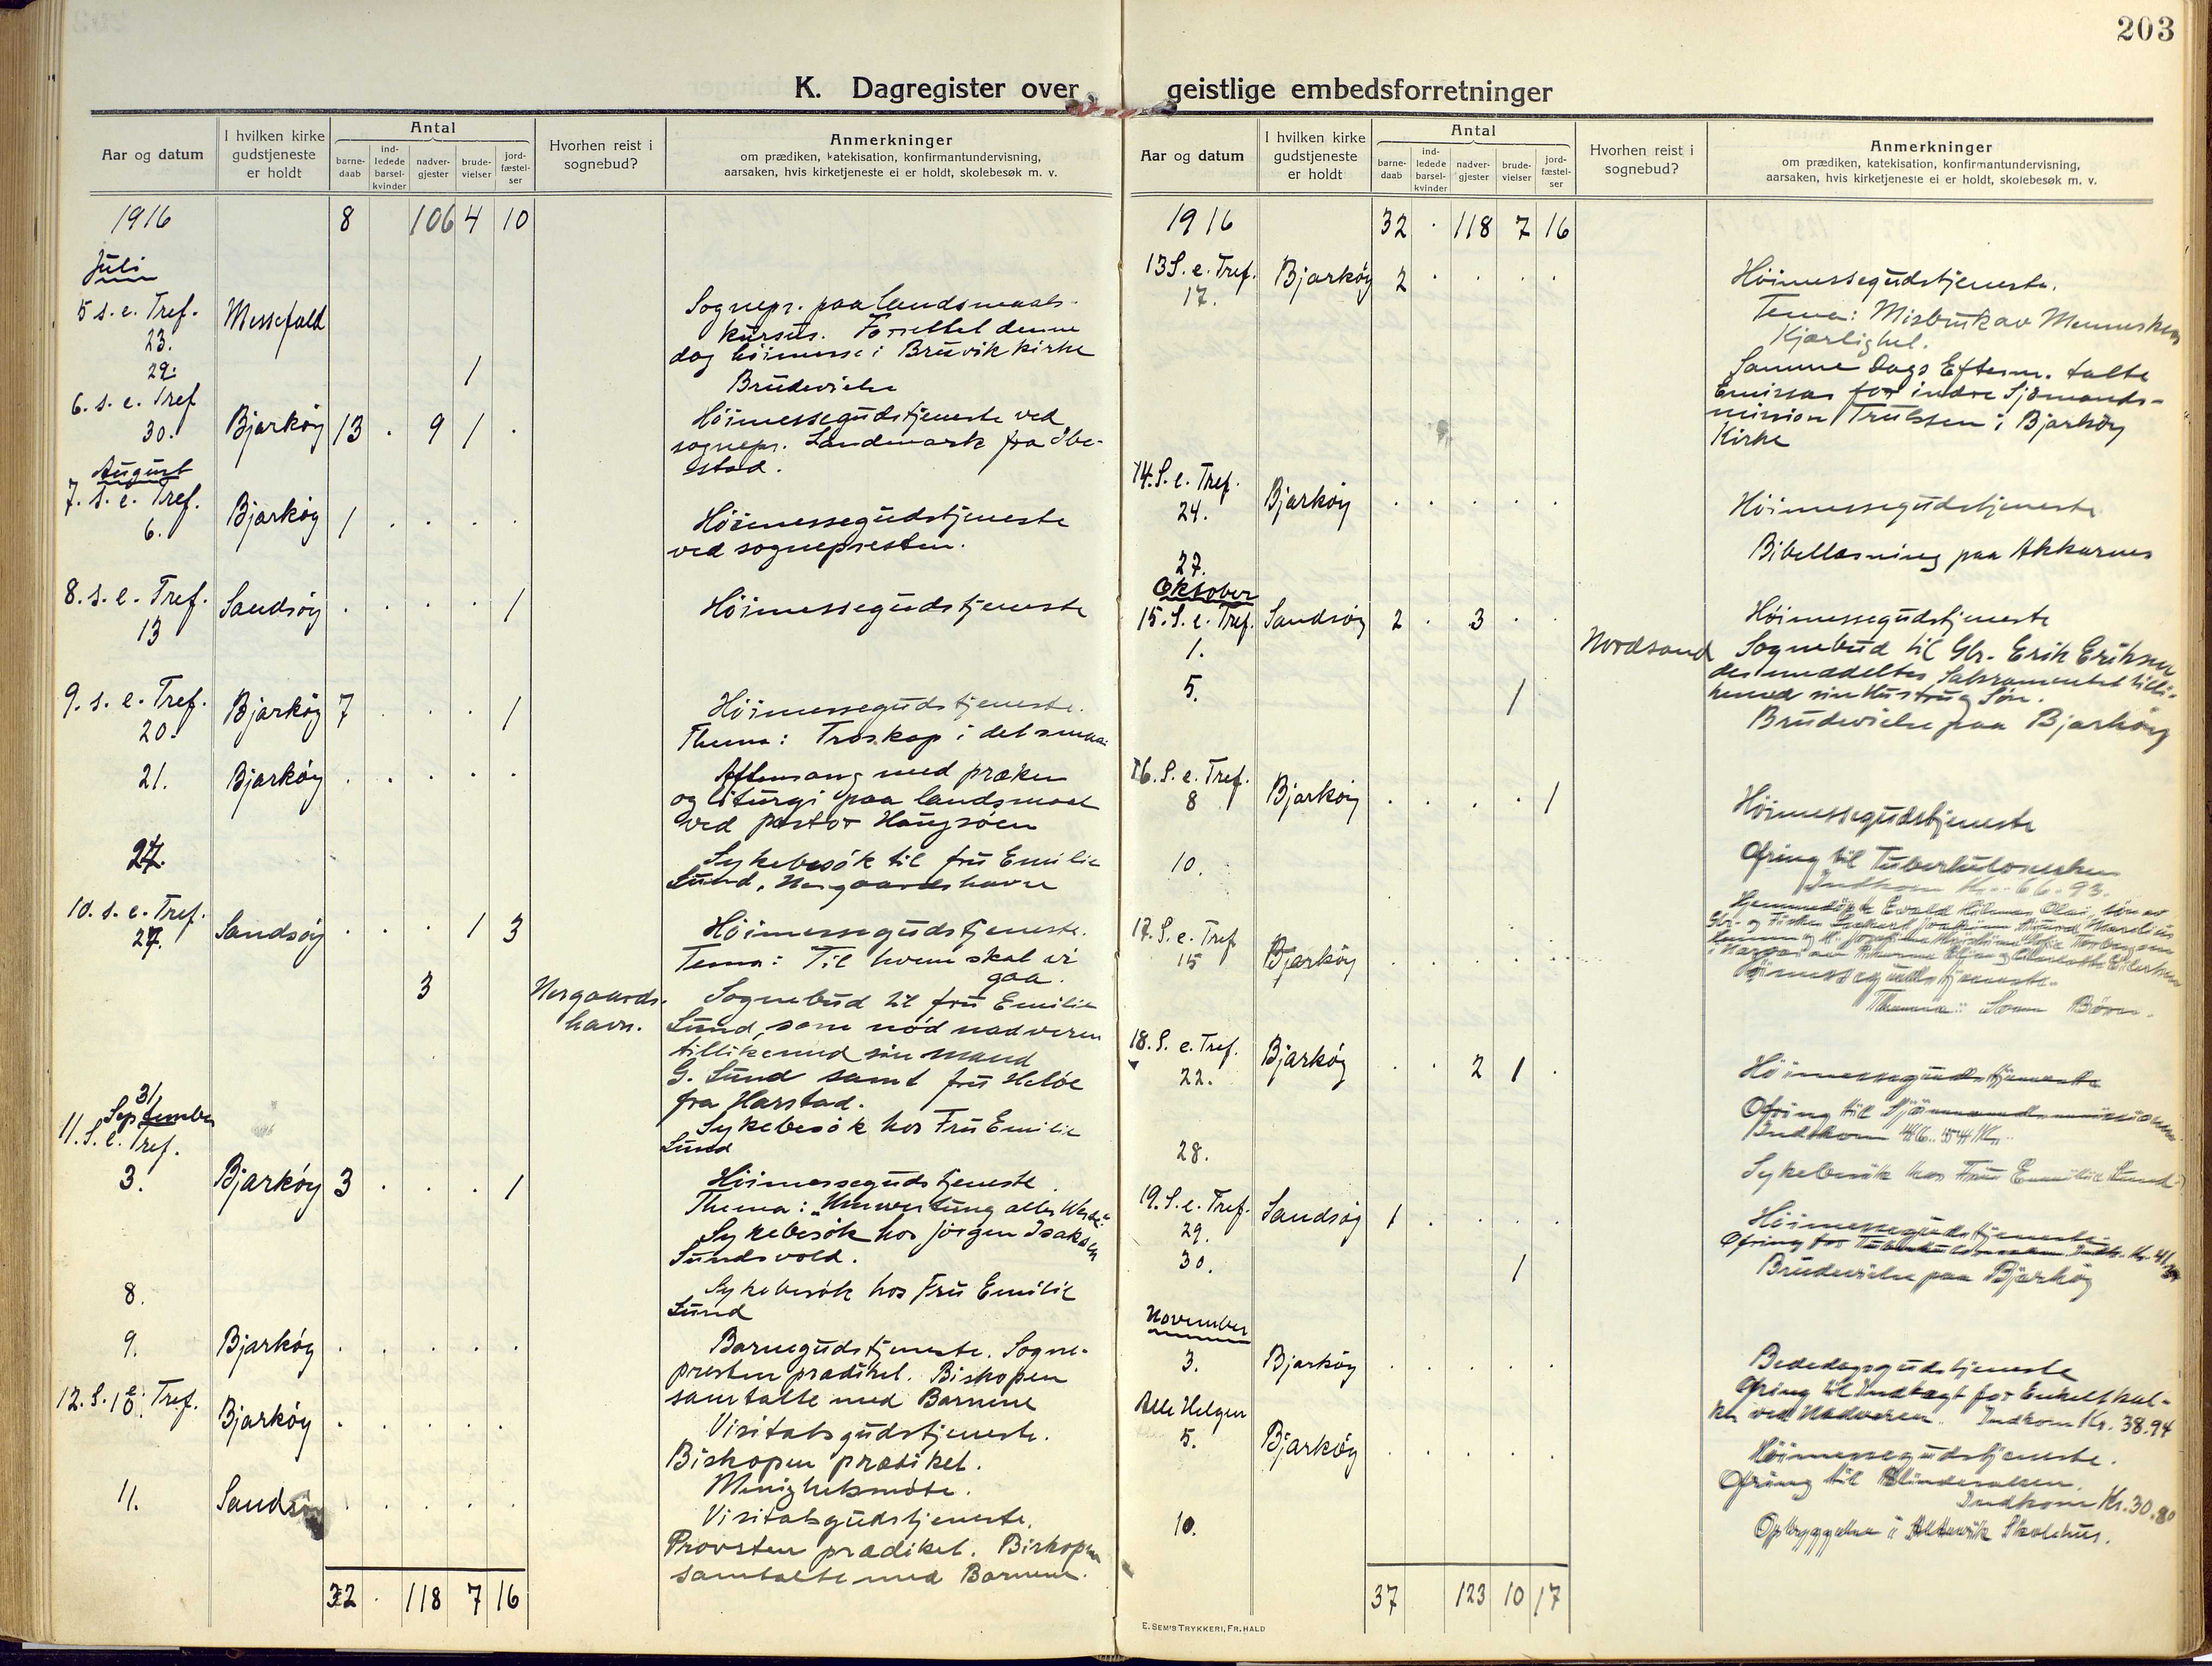 203
K. Dagregister over geistlige embedsforretninger
Aar og datum
I hvilken kirke gudstjeneste er holdt
Antal
barne-daab
ind-ledede barsel-kvinder
nadver-gjester
brude-vielser
jord-fæstel-ser
Hvorhen reist i sognebud?
Anmerkninger
om prædiken, katekisation, konfirmantundervisning,
aarsaken, hvis kirketjeneste ei er holdt, skolebesøk m. v.
1916 8 106 4 10
Juli
5 s. e. Tref. 23. Messefald
Sognepr. paa landsmaals-
kursus. Forrettet denne
dag høimesse i Bruvik kirke
29. 1 Brudevielse
6. s. e. Tref 30. Bjarkøy 13 . 9 1 .
Høimessegudstjeneste ved
sognepr. Landmark fra Ibe-
stad.
August
7. s. e. Tref. 6. Bjarkøy 1 . . . .
Høimessegudstjeneste
ved sognepresten.
8. s. e. Tref. 13 Sandsøy . . . . 1
Høimessegudstjeneste
9. s. e. Tref. 20. Bjarkøy 7 . . . 1
Høimessegudstjeneste.
Thema: Troskap i det smaa.
21. Bjarkøy . . . . .
Aftensang med præken
og liturgi paa landsmaal
ved pastor Haugsøen
24.
Sykebesøk til fru Emilie
Lund, Nergaardshavn
10. s. e. Tref. 27. Sandsøy . . . 1 3
Høimessegudstjeneste.
Tema: Til hvem skal vi
gaa.
3 Nergaards-
havn.
Sognebud til fru Emilie
Lund, som nød nadveren
tillikemed sin mand
G. Lund samt fru
fra Harstad.
31
Sykebesøk hos Fru Emilie
Lund
September
11. S. e. Tref. 3. Bjarkøy 3 . . . 1
Høimessegudstjeneste.
Thema: „Umwertung aller Werte"
Sykebesøk hos Jørgen Isaksen
Sundsvold.
8.
Sykebesøk hos Fru Emilie
Lund
9. Bjarkøy . . . . .
Barnegudstjeneste. Sogne-
presten prædiket. Bishopen
samtalte med Barnene
12. S. e. Tref. 10. Bjarkøy . . . . .
Visitatsgudstjeneste.
Biskopen prædiket.
Menighetsmøte.
11. Sandsø . . . . .
Visitatsgudstjeneste.
Provsten prædiket. Biskopen
samtalte med Barnene.
32 . 118 7 16
Aar og datum
I hvilken kirke gudstjeneste er holdt
Antal
barne-daab
ind-ledede barsel-kvinder
nadver-gjester
brude-vielser
jord-fæstel-ser
Hvorhen reist i sognebud?
Anmerkninger
om prædiken, katekisation, konfirmantundervisning,
aarsaken, hvis kirketjeneste ei er holdt, skolebesøk m. v.
1916 32 . 118 7 16
13 S. e. Tref. 17. Bjarkøy 2 . . . .
Høimessegudstjeneste.
Tema: Misbruk av Menneskers
Kjærlighet.
Samme Dags Efterm. talte
Emissær for indre Sjømands-
mission Trulssen i Bjarkøy
Kirke
14. S. e. Tref. 24. Bjarkøy . . . . .
Høimessegudstjeneste
27.
Bibellæsning paa Akkarnes
Oktober
15. S. e. Tref. 1. Sandsøy 2 . 3 . .
Høimessegudstjeneste
Nordsand
Sognebud til Gbr. Erik Eriksen
der meddeltes Sakramentet tilli-
kemed sin Hustru og Søn.
5. 1
Brudevielse paa Bjarkøy
16. S. e. Tref. 8 Bjarkøy . . . . 1
Høimessegudstjeneste
Ofring til Tuberkulosesaken
Indkom Kr. 66.93.
10.
Hjemmedøpte Evald Hilmar Olai, søn av
17. S. e. Tref 15 Bjarkøy . . . . .
Høimessegudstjeneste.
Thema: Som Børn.
18. S. e. Tref. 22. Bjarkøy . . 2 1 .
Høimessegudstjeneste
Ofring til Sjømandsmissionen
Indkom
28.
Sykebesøk hos Fru Emilie Lund
19. S. e. Tref. 29. Sandsøy 1 . . . .
Høimessegudstjeneste.
Ofring for Tuberkulosesaken Indk. Kr. 41
30. 1
Brudevielse paa Bjarkøy
November
3. Bjarkøy . . . . .
Bededagsgudstjeneste
Ofring til Indtægt for Enkeltkal-
ker ved Nadveren. Indkom Kr. 38.94
Alle Helgen 5. Bjarkøy . . . . .
Høimessegudstjeneste.
Ofring til Blindesaken.
Indkom Kr. 30.80
10.
Opbyggelse i Skolehus.
37 123 10 17
E. SEM'S TRYKKERI, FR. HALD